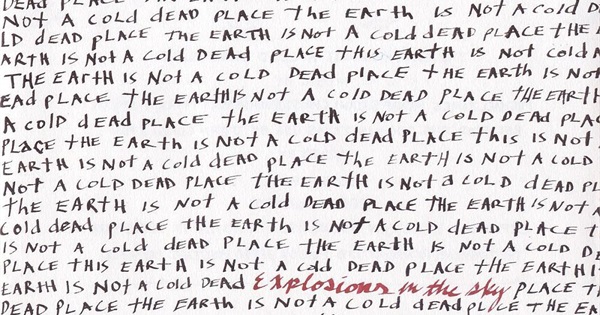 DEAD PLACE THE EARTH IS NOT A COLD DEAD
NOT A COLD DEAD PLACE THE EARTH IS NOT A COLD D
LD dEAD pLACE THE EARTH IS NOT A Cold dEAD PLACE THE
ARTH IS NOT A Cold DEAD PLACE THIS EARTH IS Not Cold A
THE EARTH IS NOT A COLD DEAD PlACE tHE EARth IS Not
EAd PLACE tHE EARTH IS Not A COLD DEAD PLACE THE EARTH
A COlD dEAD PLACE tHE EARTH IS NOt A COLD DEAd PLA
PLACE THE EARtH IS NOt A COLD dEAd PLACE tHIS IS NOt
EARTH IS Not A cold dEAD PLACE the EARTH IS Not A COLD
NOt A COLD DEAD PLACE THE EARTH IS Not a COLD dEAD PL
tHE EARTH IS NOT A Cold DEAD PLACE THE EARTH IS NOT A
Cold dEAd PLACE THE EARTH IS NOT A COLD DEAD PLACE t
IS NOT A Cold DEAD PLACE THE EARTH IS NOT A COLD D
PLACE THIS EARTH IS NOt A Cold DEAD PLACE THE EARTH I
EARTH IS NOt A COld DEAD Explosions in the sky PLACE T
DEAD PLACE tHE EARTH IS NOT A COLD dEAd pLACE THE EA